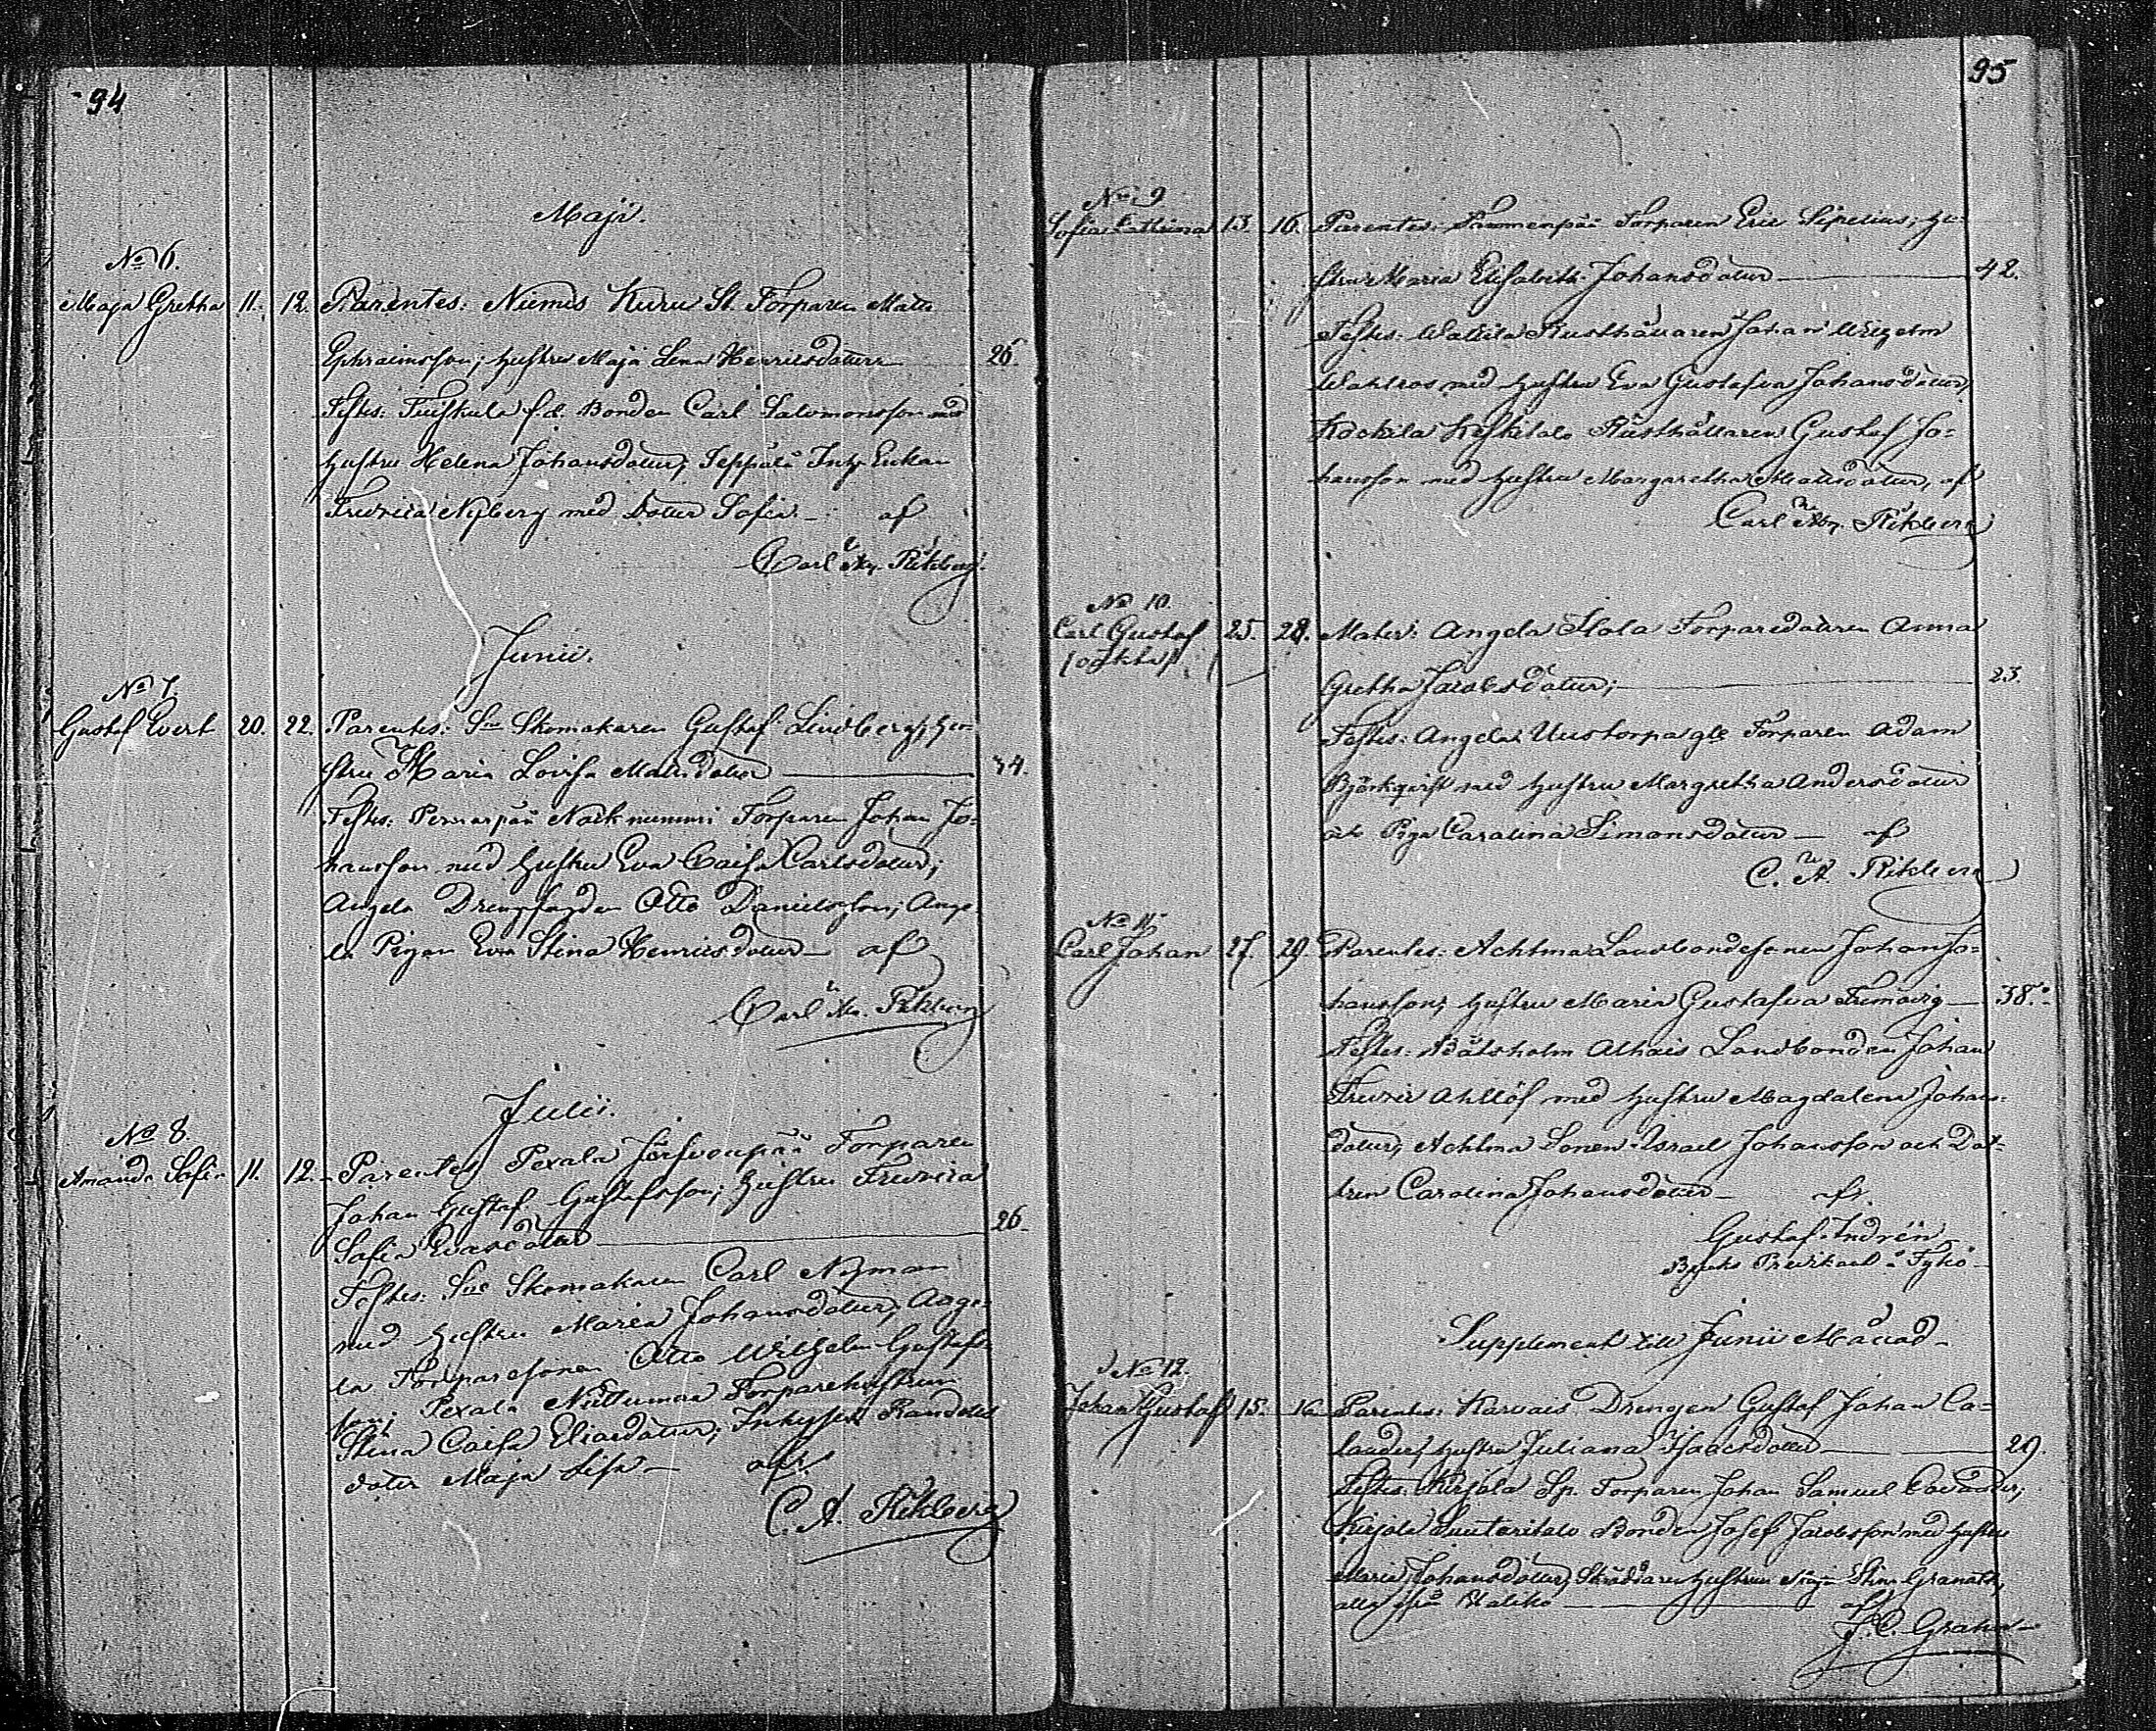 94
Maji.
No 6.
Maja Gretha 11. 12. Parentes: Niemis Kuru St. Torparen Matts
Ephraimsson; hustru Maja Lena Henricsdotter 26.
Testes: Tuiskula f.d. Bonden Carl Salomonsson med
hustru Helena Johansdotter, Seppälä Inh. Enkan
Fredrica Nyberg med dotter Sofia. — af
Carl Rikberg.
Junii.
No 7.
Gustaf Evert 20. 22. Parentes: Sne Skomakaren Gustaf Lindberg, hu-
stru Maria Lovisa Matsdotter 34.
Testes: Pernarpää Nacknummi Torparen Johan Jo-
hansson med hustru Eva Caisa Carlsdotter;
Angela Drengfogden Otto Danielsson; Ange-
la Pigan Eva Stina Henricsdotter — af
Carl Rikberg
Julii.
No 8.
Amanda Sofia 11. 12. Parentes Pexala Torparen
Johan Gustaf Gustafsson; hustru Fredrica
Sofia 26.
Testes: Sne Skomakaren Carl Nyman
med hustru Maria Johansdotter, Ange-
la Torparesonen Otto Wilhelm Gustafs-
son; Pexala Torparehustrun
Stina Caisa Eliaedotter; Inhyses
doter Maja Lisa — af
C. A. Rikberg
95
No 9
Sofia Cathrina 13. 16. Parentes: Torparen Eric Sipelius; hu-
stru Maria Elisabeth Johansdotter 42.
Testes: Wallila Rusthållaren Johan Wilhelm
Wahlros med hustru Eva Gustafva Johansdotter,
Kockila Keskitalo Rusthållaren Gustaf Jo-
hansson med hustru Margaretha Matsdotter, af
Carl Rikberg
No 10.
Carl Gustaf 25. 28. Mater: Angela Torparedottren Anna
(oäkta)
Gretha Jacobsdotter; 23.
Testes: Angela Uustorpa Torparen Adam
Björkqvist med hustru Margretha Andersdotter
och Piga Carolina Simonsdotter — af
C. A. Rikberg
No 11.
Carl Johan 27. 29. Parentes: Achtma Landbondesonen Johan Jo-
hansson, hustru Maria Gustafva 38.
Testes: Båtsholm Landbonden Johan
Fredric Ahllöf med hustru Magdalena Johans-
dotter, Achtma Sonen Israel Johansson och Dot-
tren Carolina Johansdotter — af.
Gustaf Indrén
Bruks Predikant i Tykö
Supplement till Junii Månad
No 12.
Johan Gustaf 15. 16. Parentes: Karvais Drengen Gustaf Johan Ca-
lander, hustru Juliana Isaacsdotter 29.
Testes: Kirjola Sp. Torparen Johan Samuel Calander;
Kirjola Suutaritalo Bonden Josef Jacobsson med hustru
Maria Johansdotter, Skräddarehustrun Maja Stina Granath,
alla ifrån Haliko af
J. C. Grahn